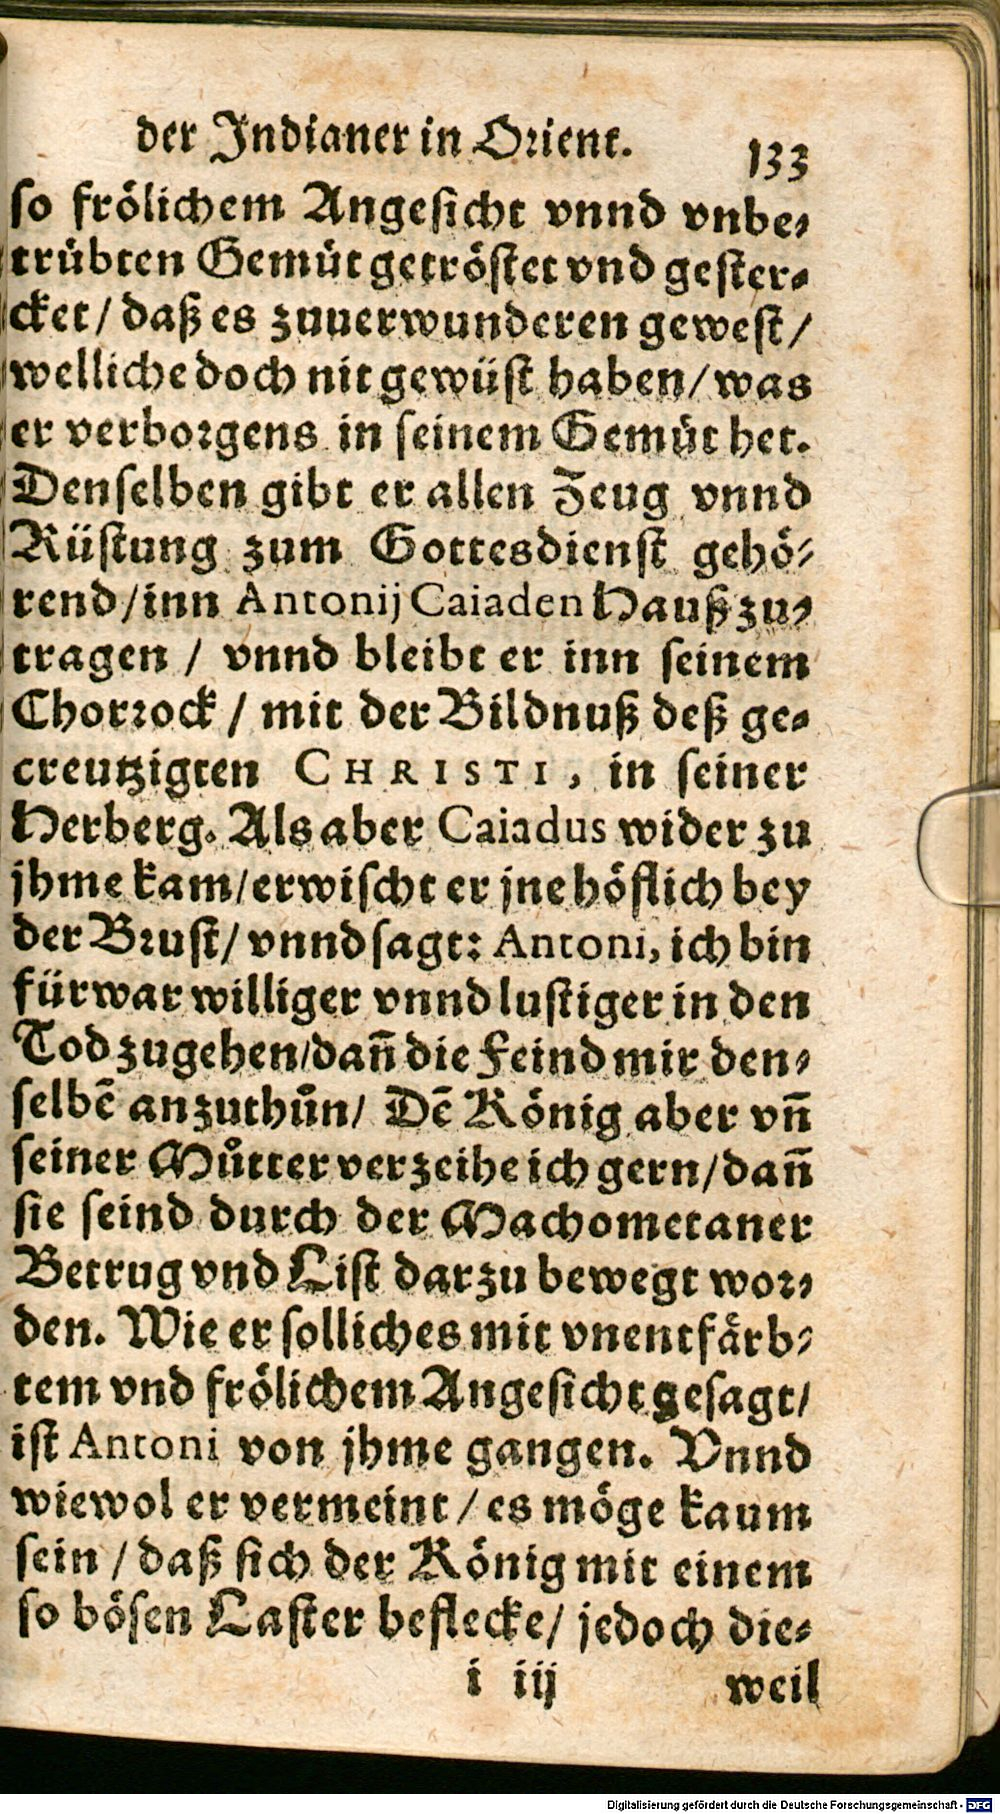 der Indianer in Orient. 133
so frölichem Angesicht vnnd vnbe-
trübten Gemüt getröstet vnd gester-
cket / daß es zuuerwunderen gewest /
welliche doch nit gewüst haben / was
er verborgens in seinem Gemüt het.
Denselben gibt er allen Zeug vnnd
Rüstung zum Gottesdienst gehö-
rend / inn Antonij Caiaden Hauß zu-
tragen / vnnd bleibt er inn seinem
Chorrock / mit der Bildnuß deß ge-
creutzigten CHRISTI, in seiner
Herberg. Als aber Caiadus wider zu
jhme kam / erwischt er jne höflich bey
der Brust / vnnd sagt: Antoni, ich bin
fürwar williger vnnd lustiger in den
Tod zugehen / dañ die Feind mir den-
selbẽ anzuthůn / Dẽ König aber vñ
seiner Můtter verzeihe ich gern / dañ
sie seind durch der Machometaner
Betrug vnd List darzu bewegt wor-
den. Wie er solliches mit vnentfärb-
tem vnd frölichem Angesicht gesagt /
ist Antoni von jhme gangen. Vnnd
wiewol er vermeint / es möge kaum
sein / daß sich der König mit einem
so bösen Laster beflecke / jedoch die-
i iij weil
Digitalisierung gefördert durch die Deutsche Forschungsgemeinschaft - DFG